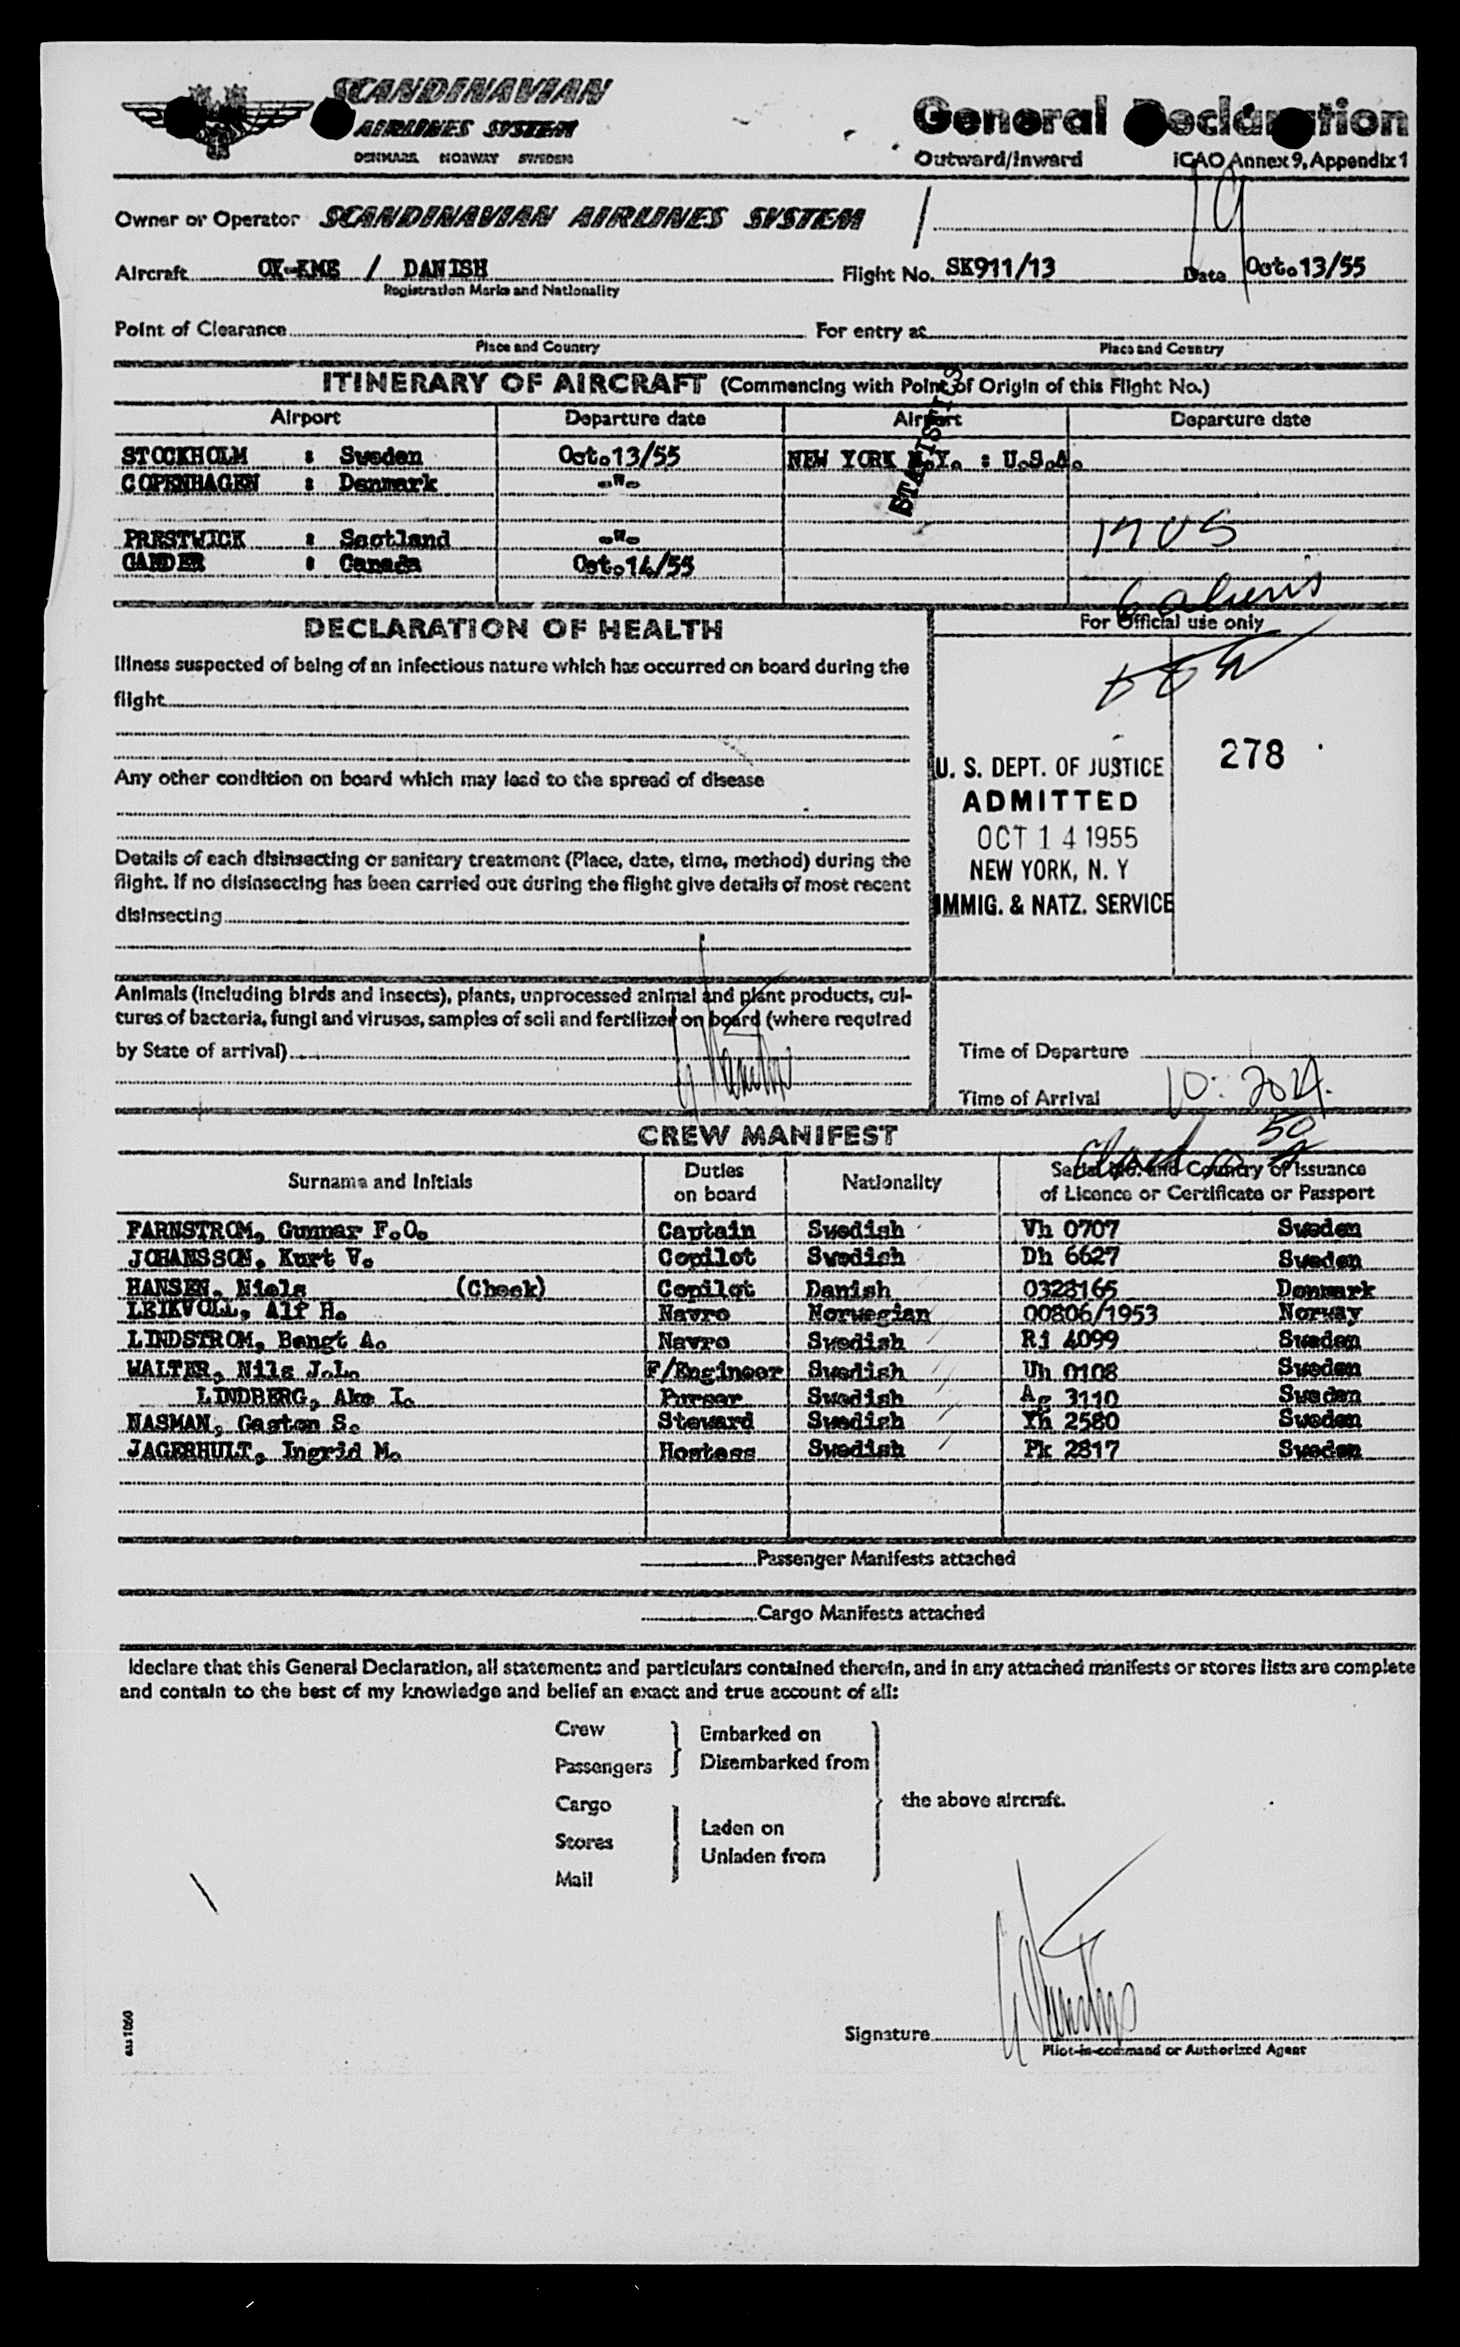 SCANDINAVIAN
AIRLINES SYSTEM
DENMARK NORWAY SWEDEN
General Declaration
Outward/Inward ICAO Annex 9, Appendix 1
Owner or Operator SCANDINAVIAN AIRLINES SYSTEM
19
Aircraft OY-KME / DANISH Flight No. SK911/13 Date Oct.13/55
Registration Marks and Nationality
Point of Clearance For entry at
Place and Country Place and Country
ITINERARY OF AIRCRAFT (Commencing with Point of Origin of this Flight No.)
Airport Departure date Airport Departure date
STATISTICS
STOCKHOLM : Sweden Oct.13/55 NEW YORK N.Y. : U.S.A.
COPENHAGEN : Denmark -"-
PRESTWICK : Scotland -"-
17 US
GANDER : Canada Oct.14/55
6 aliens
DECLARATION OF HEALTH
For Official use only
Illness suspected of being of an infectious nature which has occurred on board during the
flight
278
Any other condition on board which may lead to the spread of disease
U. S. DEPT. OF JUSTICE
ADMITTED
OCT 14 1955
NEW YORK, N. Y
IMMIG. & NATZ. SERVICE
Details of each disinsecting or sanitary treatment (Place, date, time, method) during the
flight. If no disinsecting has been carried out during the flight give details of most recent
disinsecting
Animals (including birds and insects), plants, unprocessed animal and plant products, cul-
tures of bacteria, fungi and viruses, samples of soil and fertilizer on board (where required
by State of arrival)
Time of Departure
Time of Arrival
CREW MANIFEST
Surname and Initials Duties on board Nationality Serial No. and Country of Issuance
of Licence or Certificate or Passport
FARNSTROM, Gunnar F.O. Captain Swedish Vh 0707 Sweden
JOHANSSON, Kurt V. Copilot Swedish Dh 6627 Sweden
HANSEN, Niels (Check) Copilot Danish 0328165 Denmark
LEIKVOLL, Alf H. Navro Norwegian 00806/1953 Norway
LINDSTROM, Bengt A. Navro Swedish Rj 4099 Sweden
WALTER, Nils J.L. F/Engineer Swedish Uh 0108 Sweden
LINDBERG, Ake I. Purser Swedish Ag 3110 Sweden
NASMAN, Gaston S. Steward Swedish Yh 2580 Sweden
JAGERHULT, Ingrid M. Hostess Swedish Pk 2817 Sweden
Passenger Manifests attached
Cargo Manifests attached
I declare that this General Declaration, all statements and particulars contained therein, and in any attached manifests or stores lists are complete
and contain to the best of my knowledge and belief an exact and true account of all:
Crew
Embarked on
Passengers
Disembarked from
the above aircraft.
Cargo
Laden on
Stores
Unladen from
Mail
Signature
Pilot-in-command or Authorized Agent